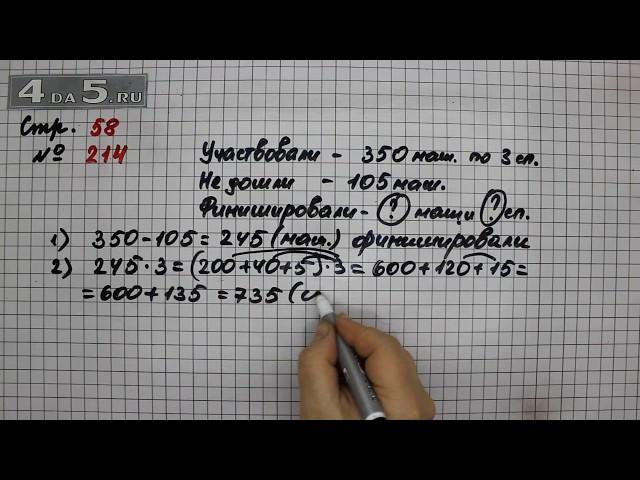 4DA5.RU
Стр. 58
№ 214
Участвовали - 350 маш. по 3 сп.
Не дошли - 105 маш.
Финишировали - ? маш и ? сп.
1) 350-105=245 (маш.) финишировали
2) 245·3=(200+40+5)·3=600+120+15=
=600+135=735 (с